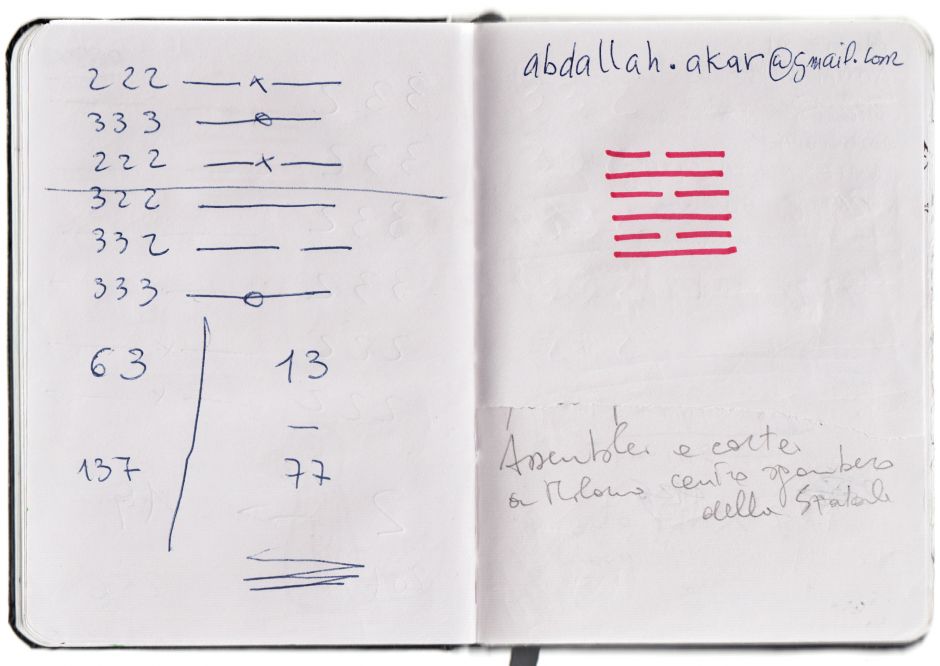 222
333
222
322
332
333
63 13
137 77
abdallah.akar@gmail.com
Assemblee e cortei
a Milano centro sgombero
della Statale